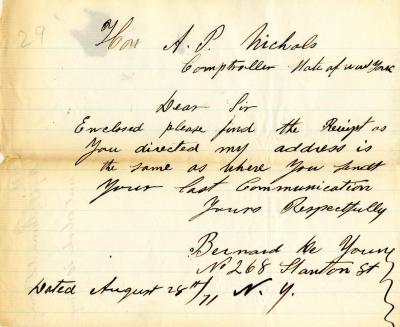 29
Hon A. P. Nichols
Comptroller State of New York
Dear Sir
Enclosed please find the Receipt as
You directed my address is
the same as where You sent
Your last Communication
Yours Respectfully
Bernard De Young
No 268 Stanton St
Dated August 28th/71 N. Y.